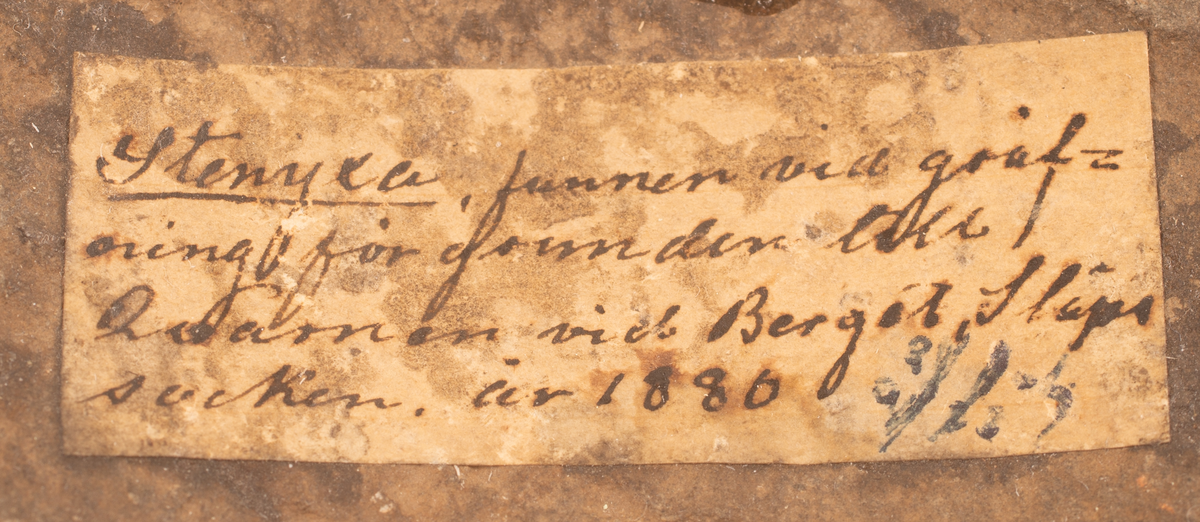 Stenyxa, funnen vid gräf=
ning för grunden till
Quarnen vid Berget, Släps
socken, år 1880